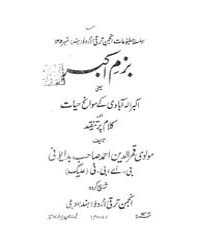 سلسلۂ مطبوعات انجمن ترقی اُردو (ہند) نمبر
بزمِ اکبر
یعنی
اکبر الہ آبادی کے سوانح حیات
اور
کلام پر تنقید
مولوی قمر الدین احمد صاحب بدایونی
بی۔ اے، بی۔ ٹی (علیگ)
شایع کردہ
انجمن ترقی اُردو (ہند) دہلی